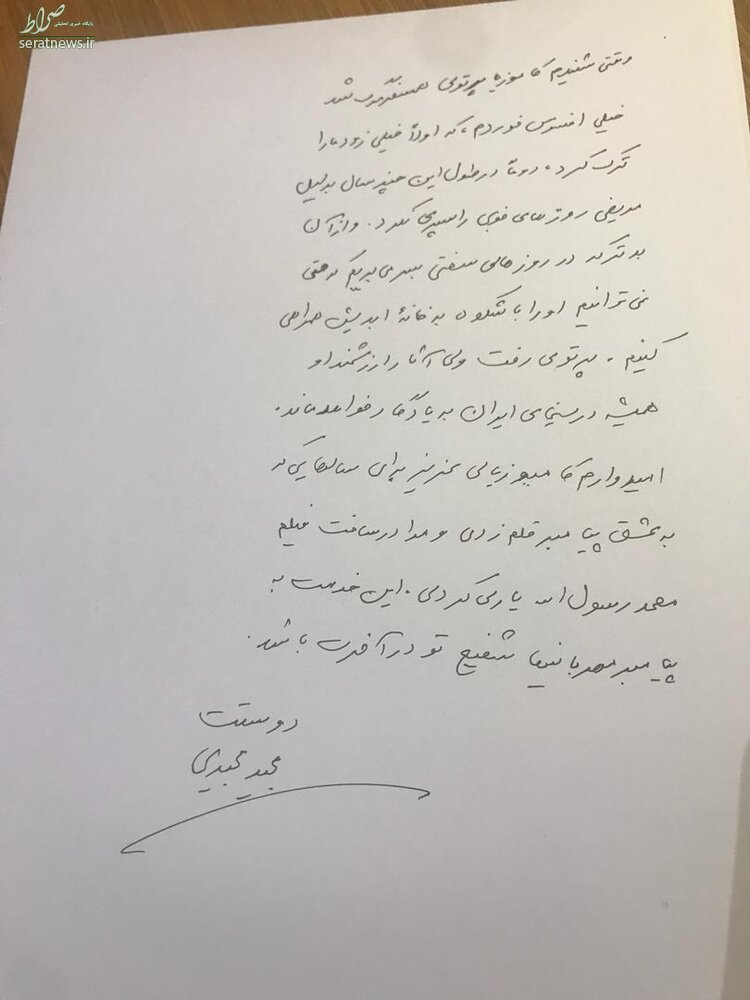 صراط
پایگاه خبری تحلیلی
seratnews.ir
وقتی شنیدم کامبوزیا پرتوی
خیلی افسوس خوردم، که اولاً خیلی زود ما را
ترک کرد، دوماً در طول این چند سال بدلیل
مریضی روزهای خوبی را سپری نکرد. و از آن
بدتر که در روزهای سختی بسر می‌بریم که حتی
نمی‌توانیم او را باشکوه به خانهٔ ابدیش همراهی
کنیم. پرتوی رفت ولی آثار ارزشمند او
همیشه در سینمای ایران به یادگار خواهد ماند.
امیدوارم کامبوزیای عزیز برای سالهایی که
به عشق پیامبر قلم زدی و مرا در ساخت فیلم
محمد رسول الله یاری کردی. این خدمت به
پیامبر مهربانیها شفیع تو در آخرت باشد.
دوستت
مجید مجیدی